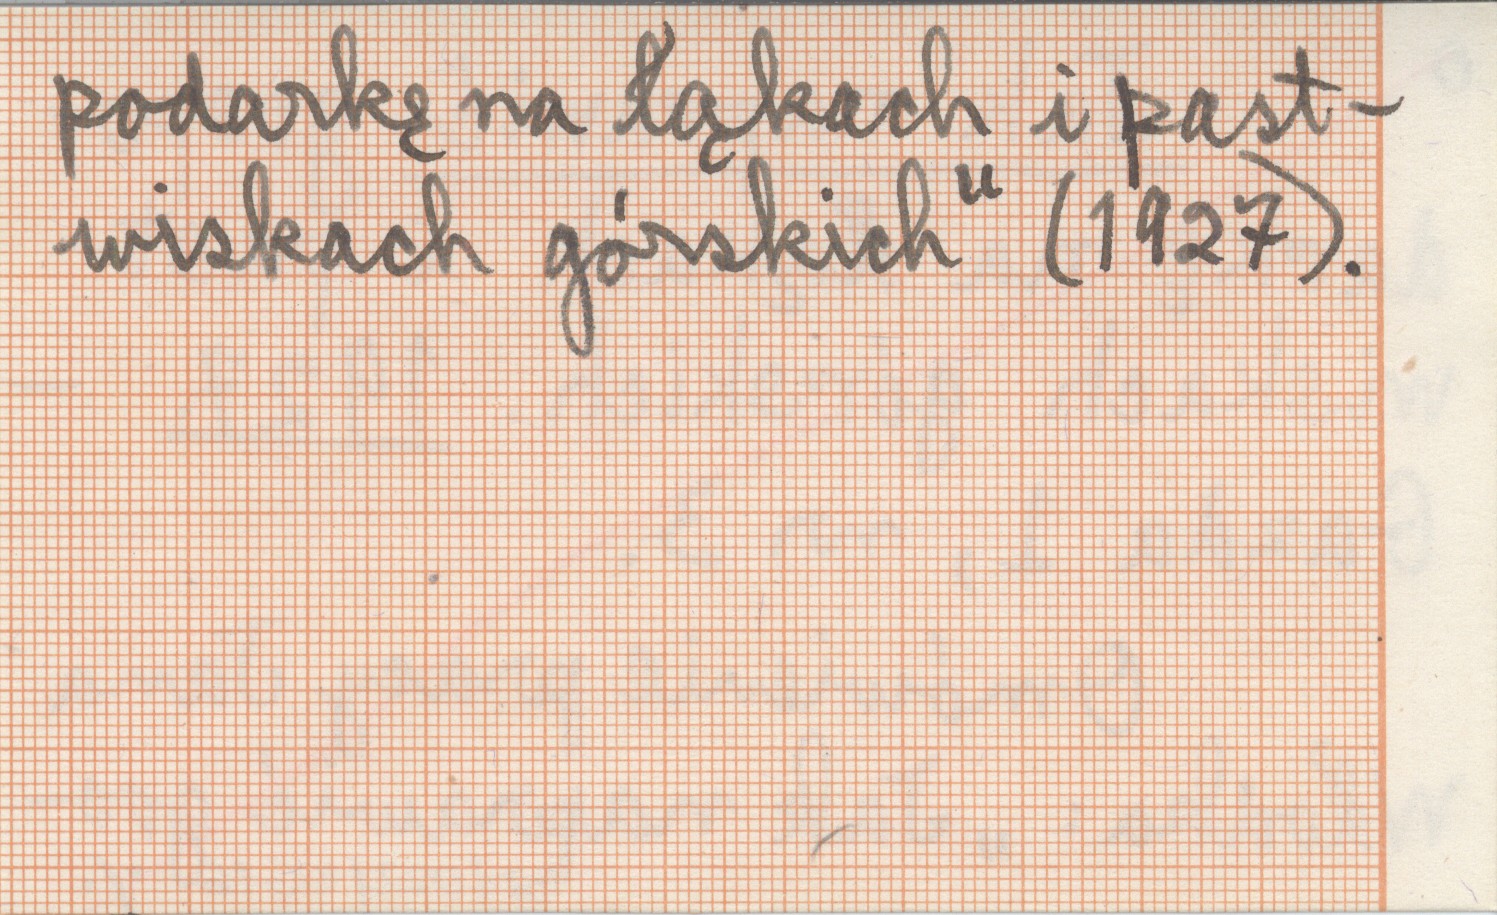 podarkę na łąkach i past-
wiskach górskich" (1927).